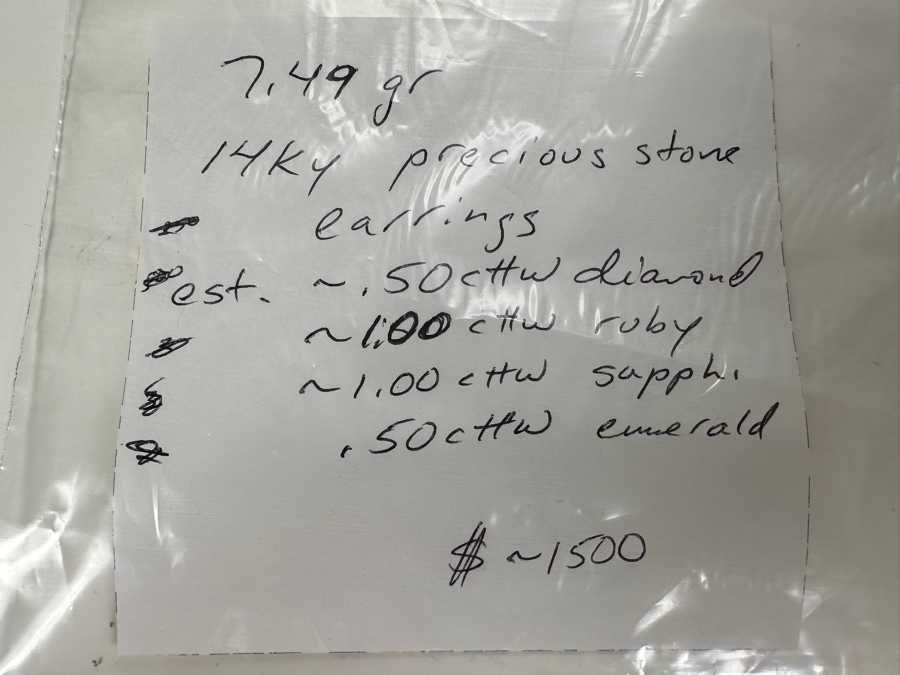 7.49 gr
14Ky precious stone
earrings
est. ~.50 cttw diamond
~1.00 cttw ruby
~1.00 cttw sapph.
.50 cttw emerald
$ ~1500